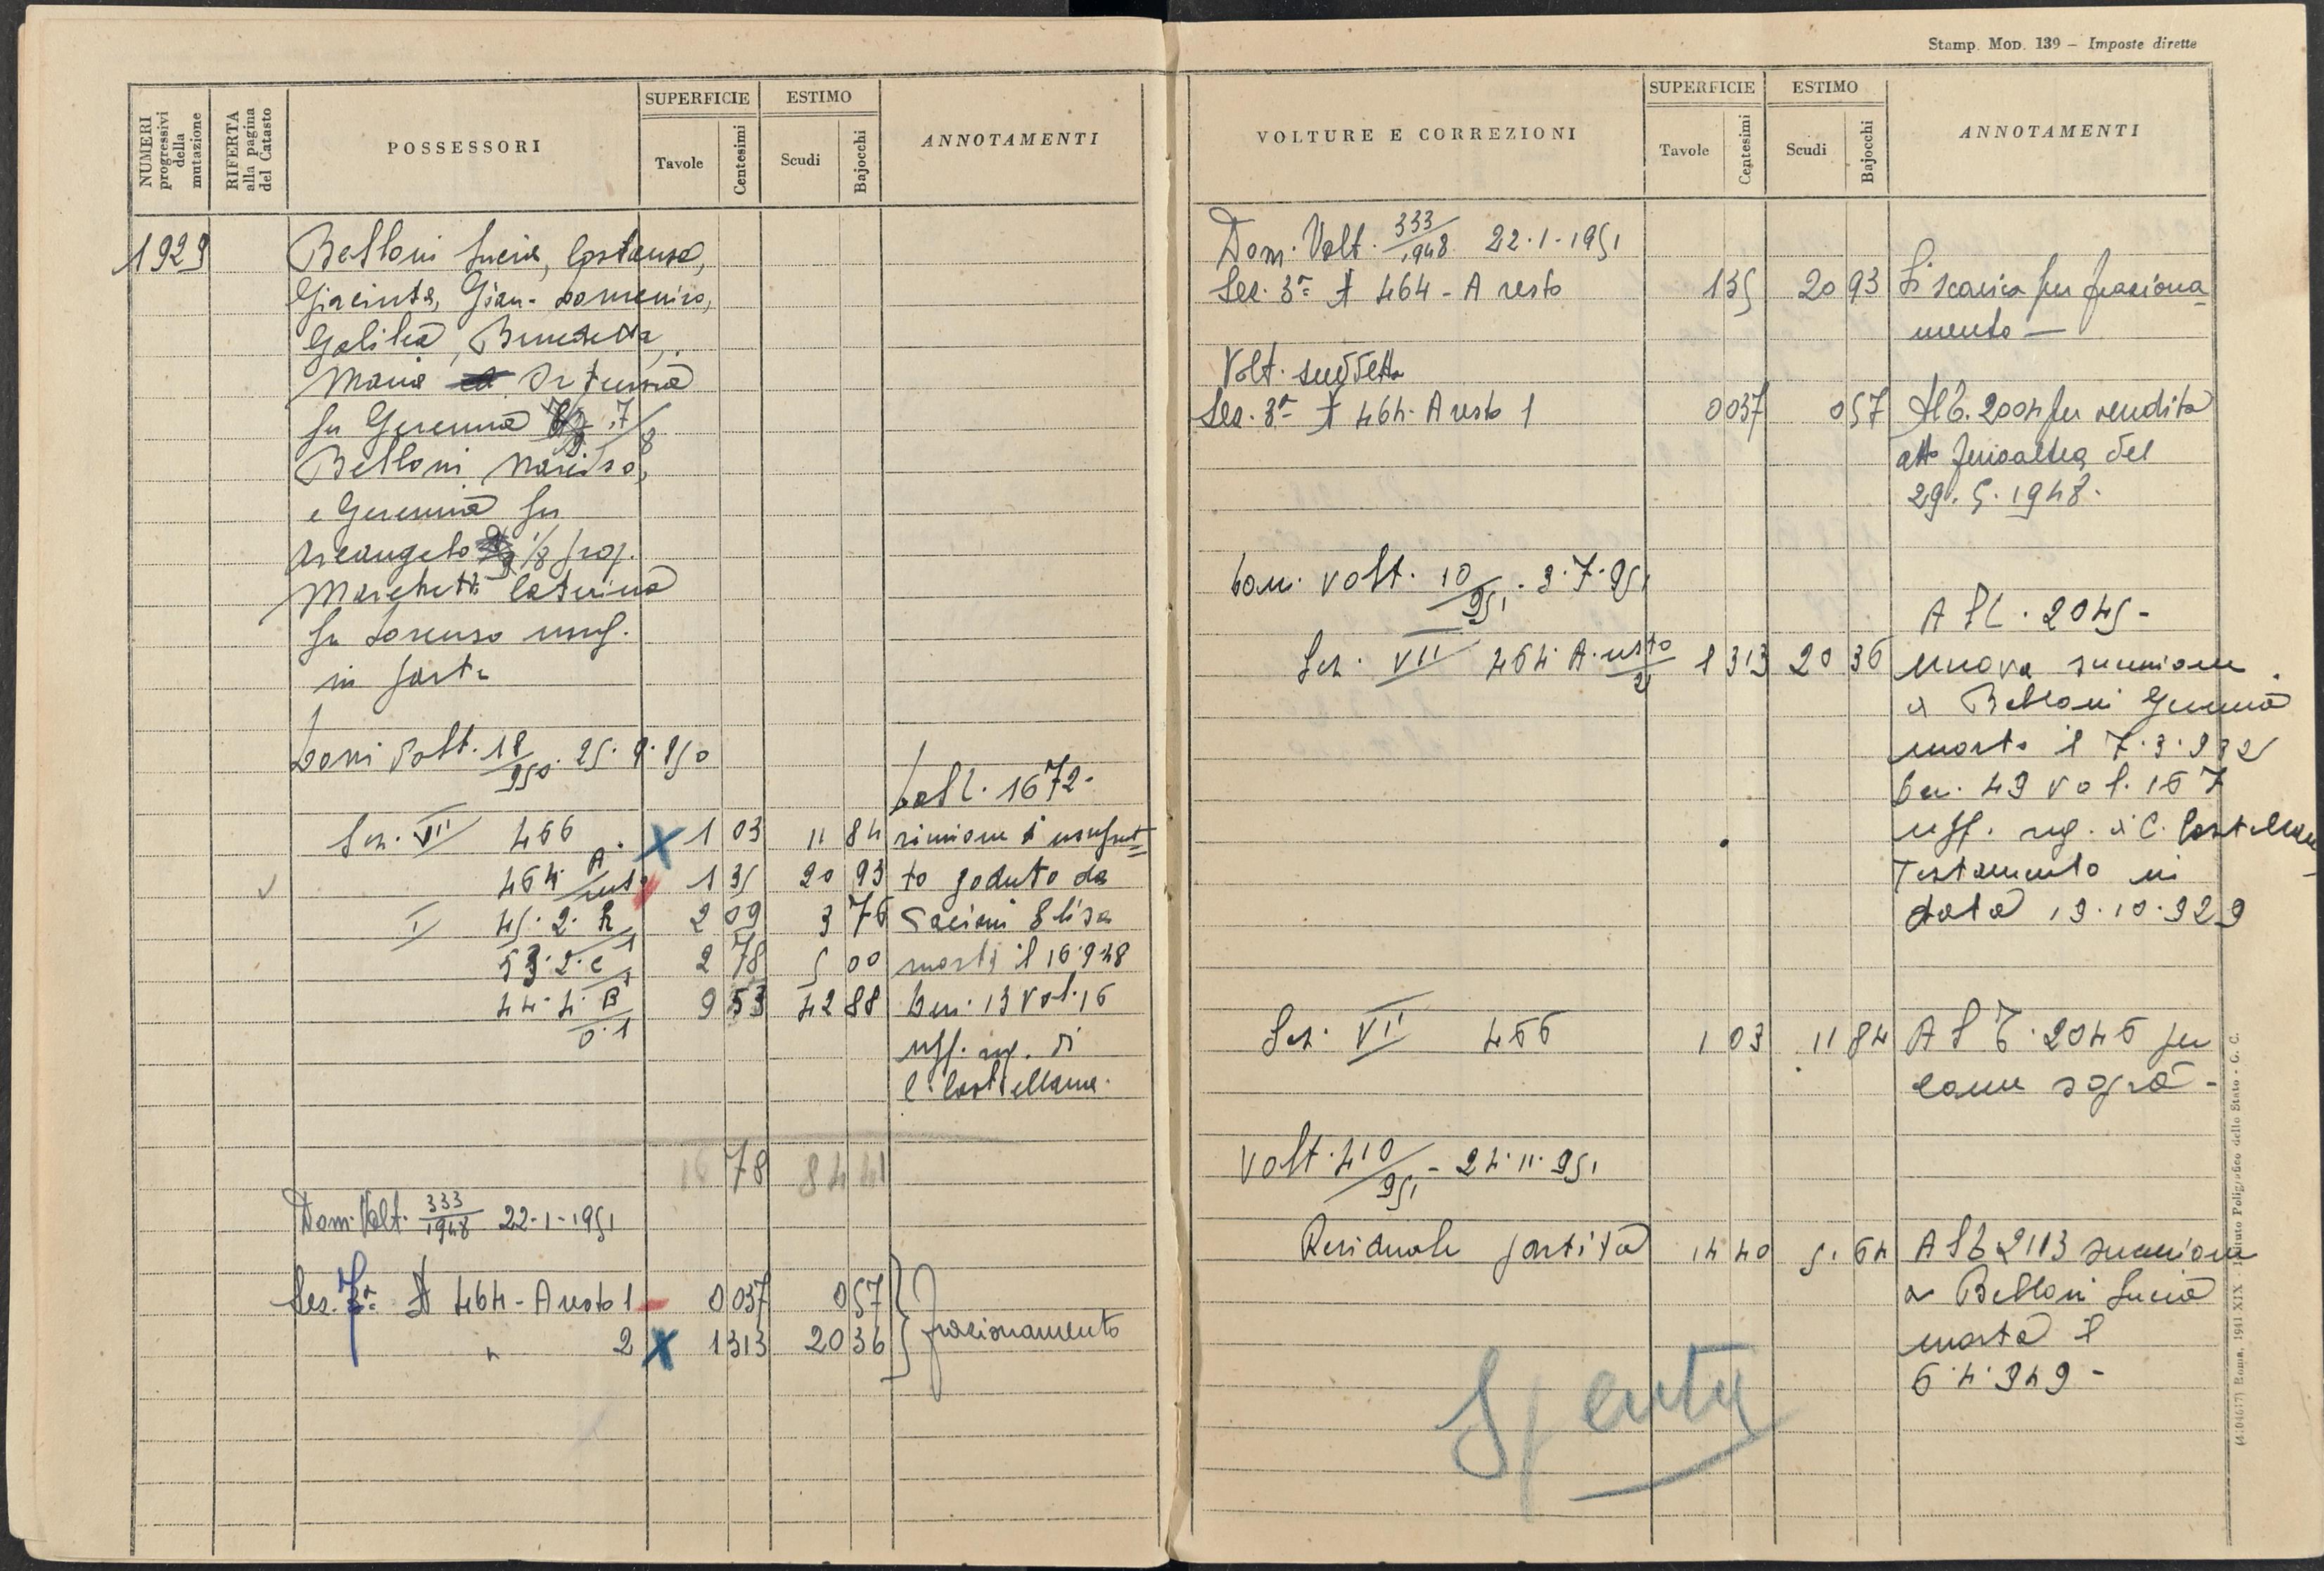 Stamp. Mod. 139 – Imposte dirette
NUMERI progressivi della mutazione
RIFERTA alla pagina del Catasto
POSSESSORI
SUPERFICIE
Tavole
Centesimi
ESTIMO
Scudi
Bajocchi
ANNOTAMENTI
1929
Belloni Lucia, Costanza,
Giacinta, Gian-Domenico,
Galilea, Benedetta,
Maria
fu Geremia 7/8
Belloni Narciso,
e Geremia fu
Arcangelo 1/8 prop.
Marchetti Caterina
fu Lorenzo usuf.
in parte
Volt. 18/950 25.9.950
Sez. VII 466 X 1 03 11 84
464 A/resto 1 35 20 93
I 45.2. 2 09 3 76
53.2.c/1 2 78 5 00
44.4.B/0.1 9 53 42 88
Dall. 1672-
riunione di usufrut=
to goduto da
Elisa
morta il 16 9 48
Den. 13 Vol. 16
uff. reg. di
C. Castellana.
16 78 84 41
Dom. Volt. 333/1948 22-1-1951
Sez. 464-A resto 1 0 037 0 57
" 2 X 1 313 20 36
frazionamento
VOLTURE E CORREZIONI
SUPERFICIE
Tavole
Centesimi
ESTIMO
Scudi
Bajocchi
ANNOTAMENTI
Dom. Volt. 333/1948 22-1-1951
Sez. 3ª 464-A resto 1 35 20 93 Si scarica per fraziona
mento —
Volt. suddetta
Sez. 3ª 464-A resto 1 0 037 0 57 Al C. 2004 per vendita
atto del
29.5.1948.
Volt. 10/951. 3.7.951
Sez. VII 464 A.resto/2 1 313 20 36
Al C. 2045-
nuova successione
di Belloni Geremia
morto il 7.3.932
Den. 49 vol. 167
uff. reg. di C. Castellana
Testamento in
data 19.10.929
Sez. VII 466 1 03 11 84 Al C. 2046 per
come sopra -
Volt. 410/951 - 24.11.951
Residuale partita 14 40 51 64 Al C 2113 successione
di Belloni Lucia
morta il
6.4.949 -
Spenta
(4104617) Roma, 1941 XIX - Istituto Poligrafico dello Stato - G. C.